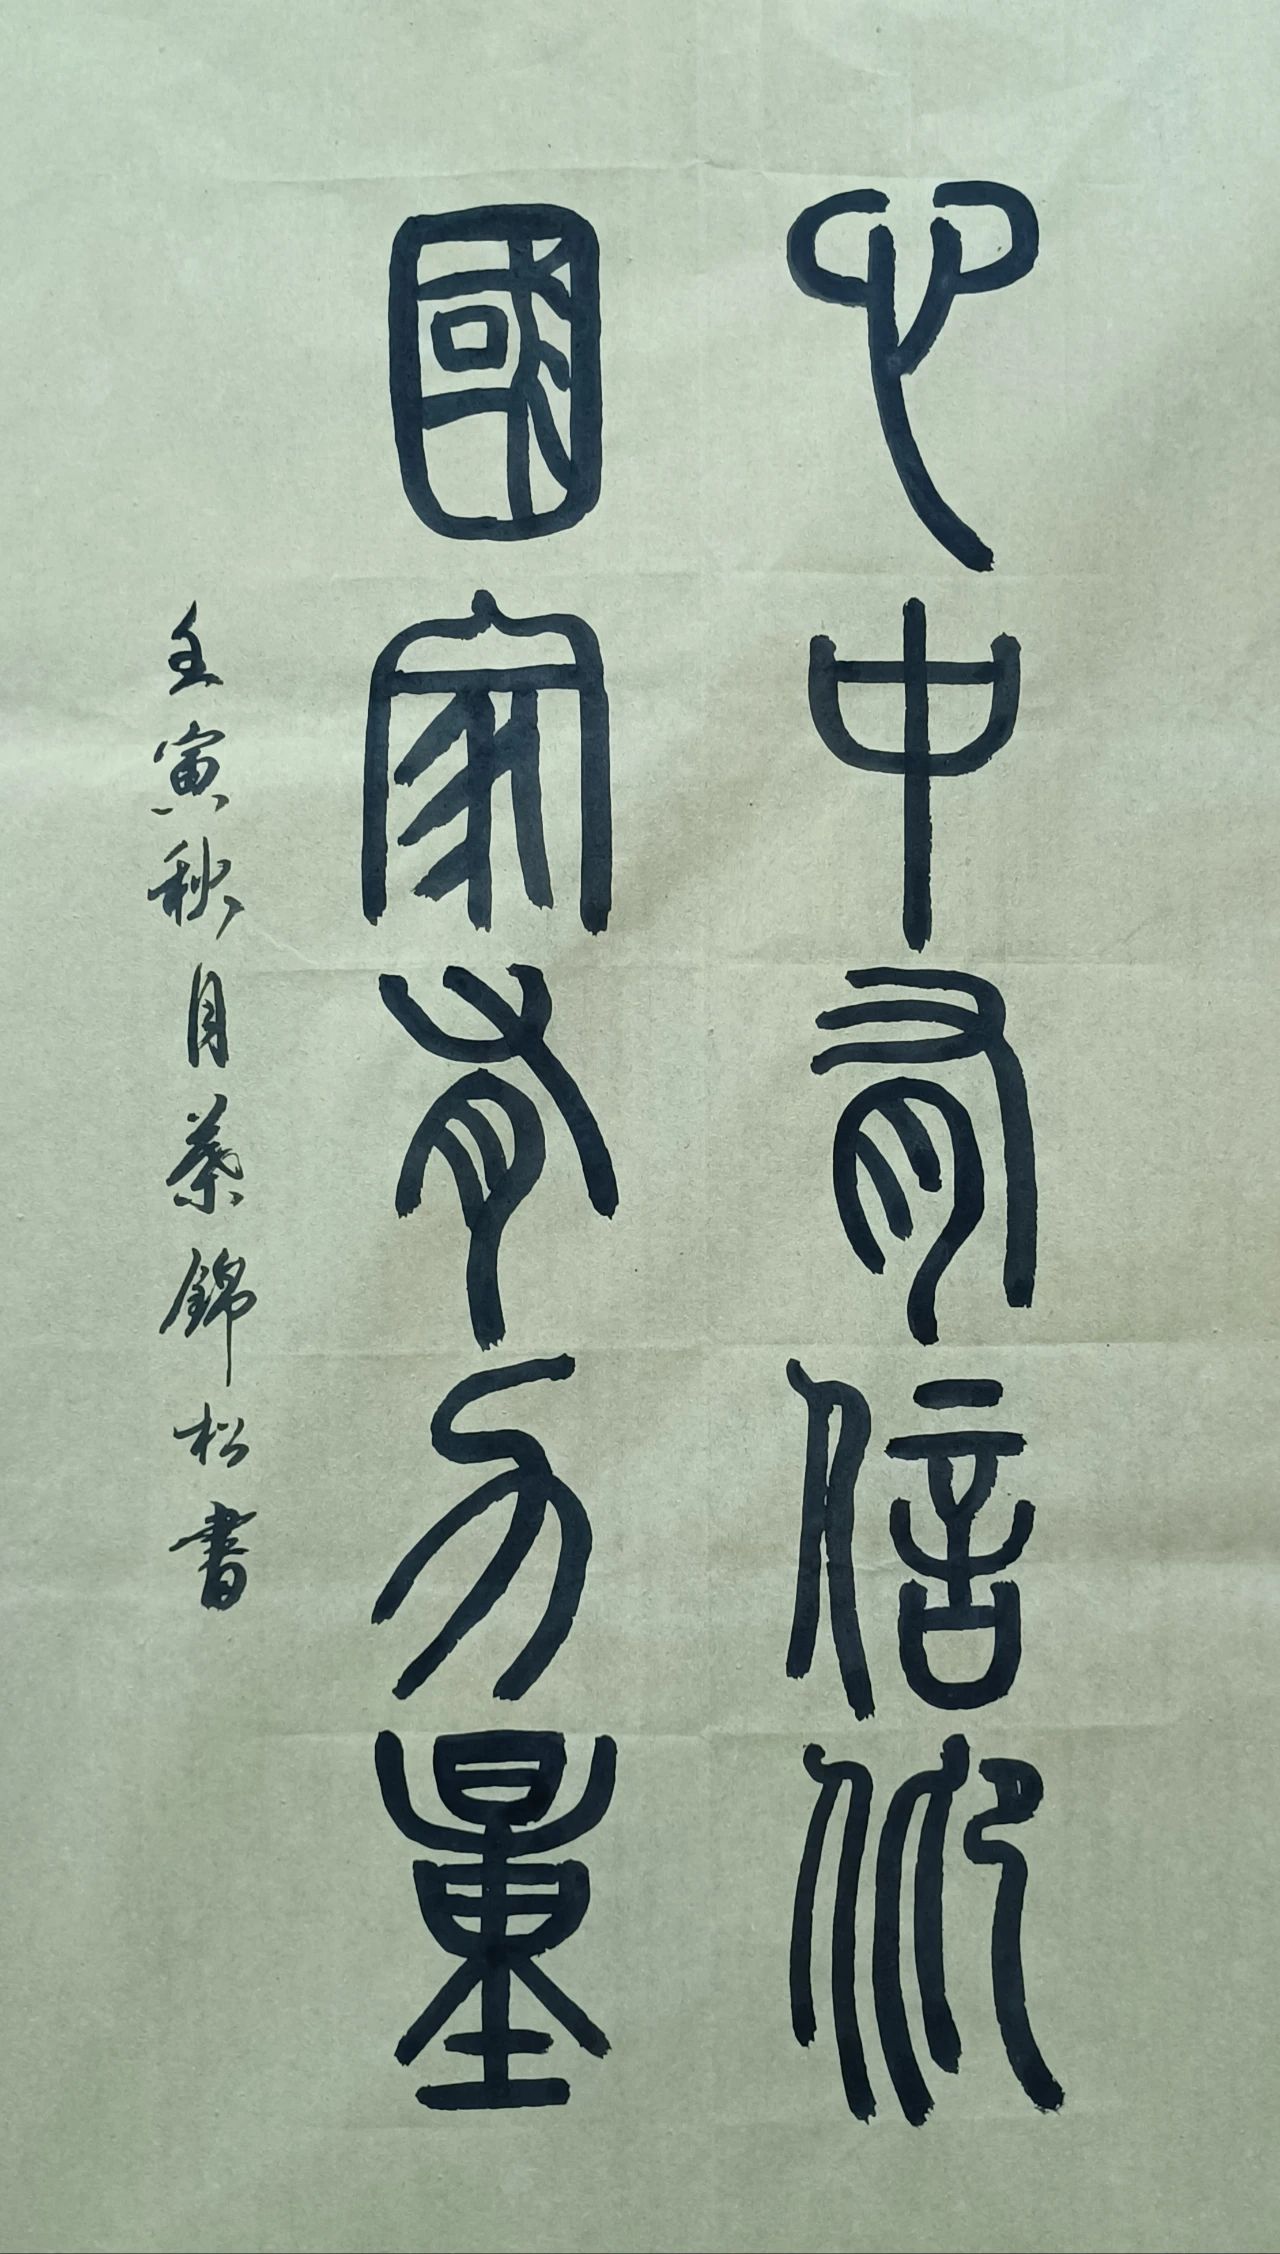 心中有信仰
國家有力量
壬寅秋月蔡錦松書